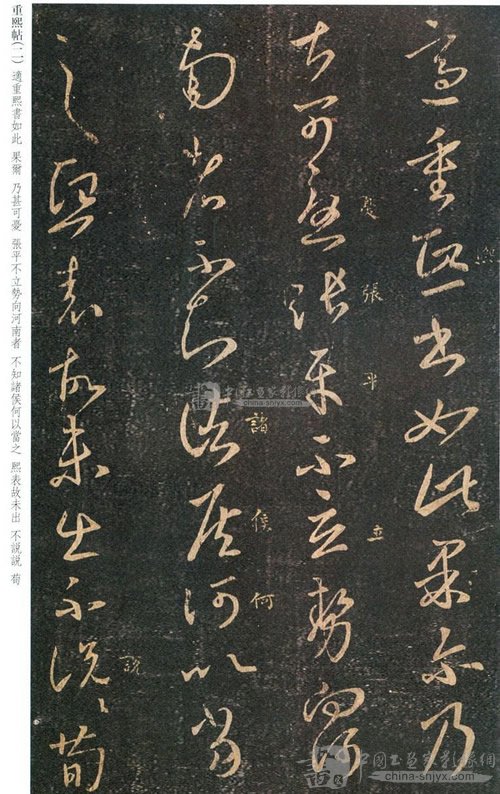 適重熙書如此果爾乃
熙
甚可憂張平不立勢向河
憂 張 平 立
南者不知諸侯何以當
諸 侯 何
之熙表故未出不說〻荀
說
重熙帖(二) 適重熙書如此 果爾 乃甚可憂 張平不立勢向河南者 不知諸侯何以當之 熙表故未出 不說說 荀
china-snjyx.com
china-snjyx.com